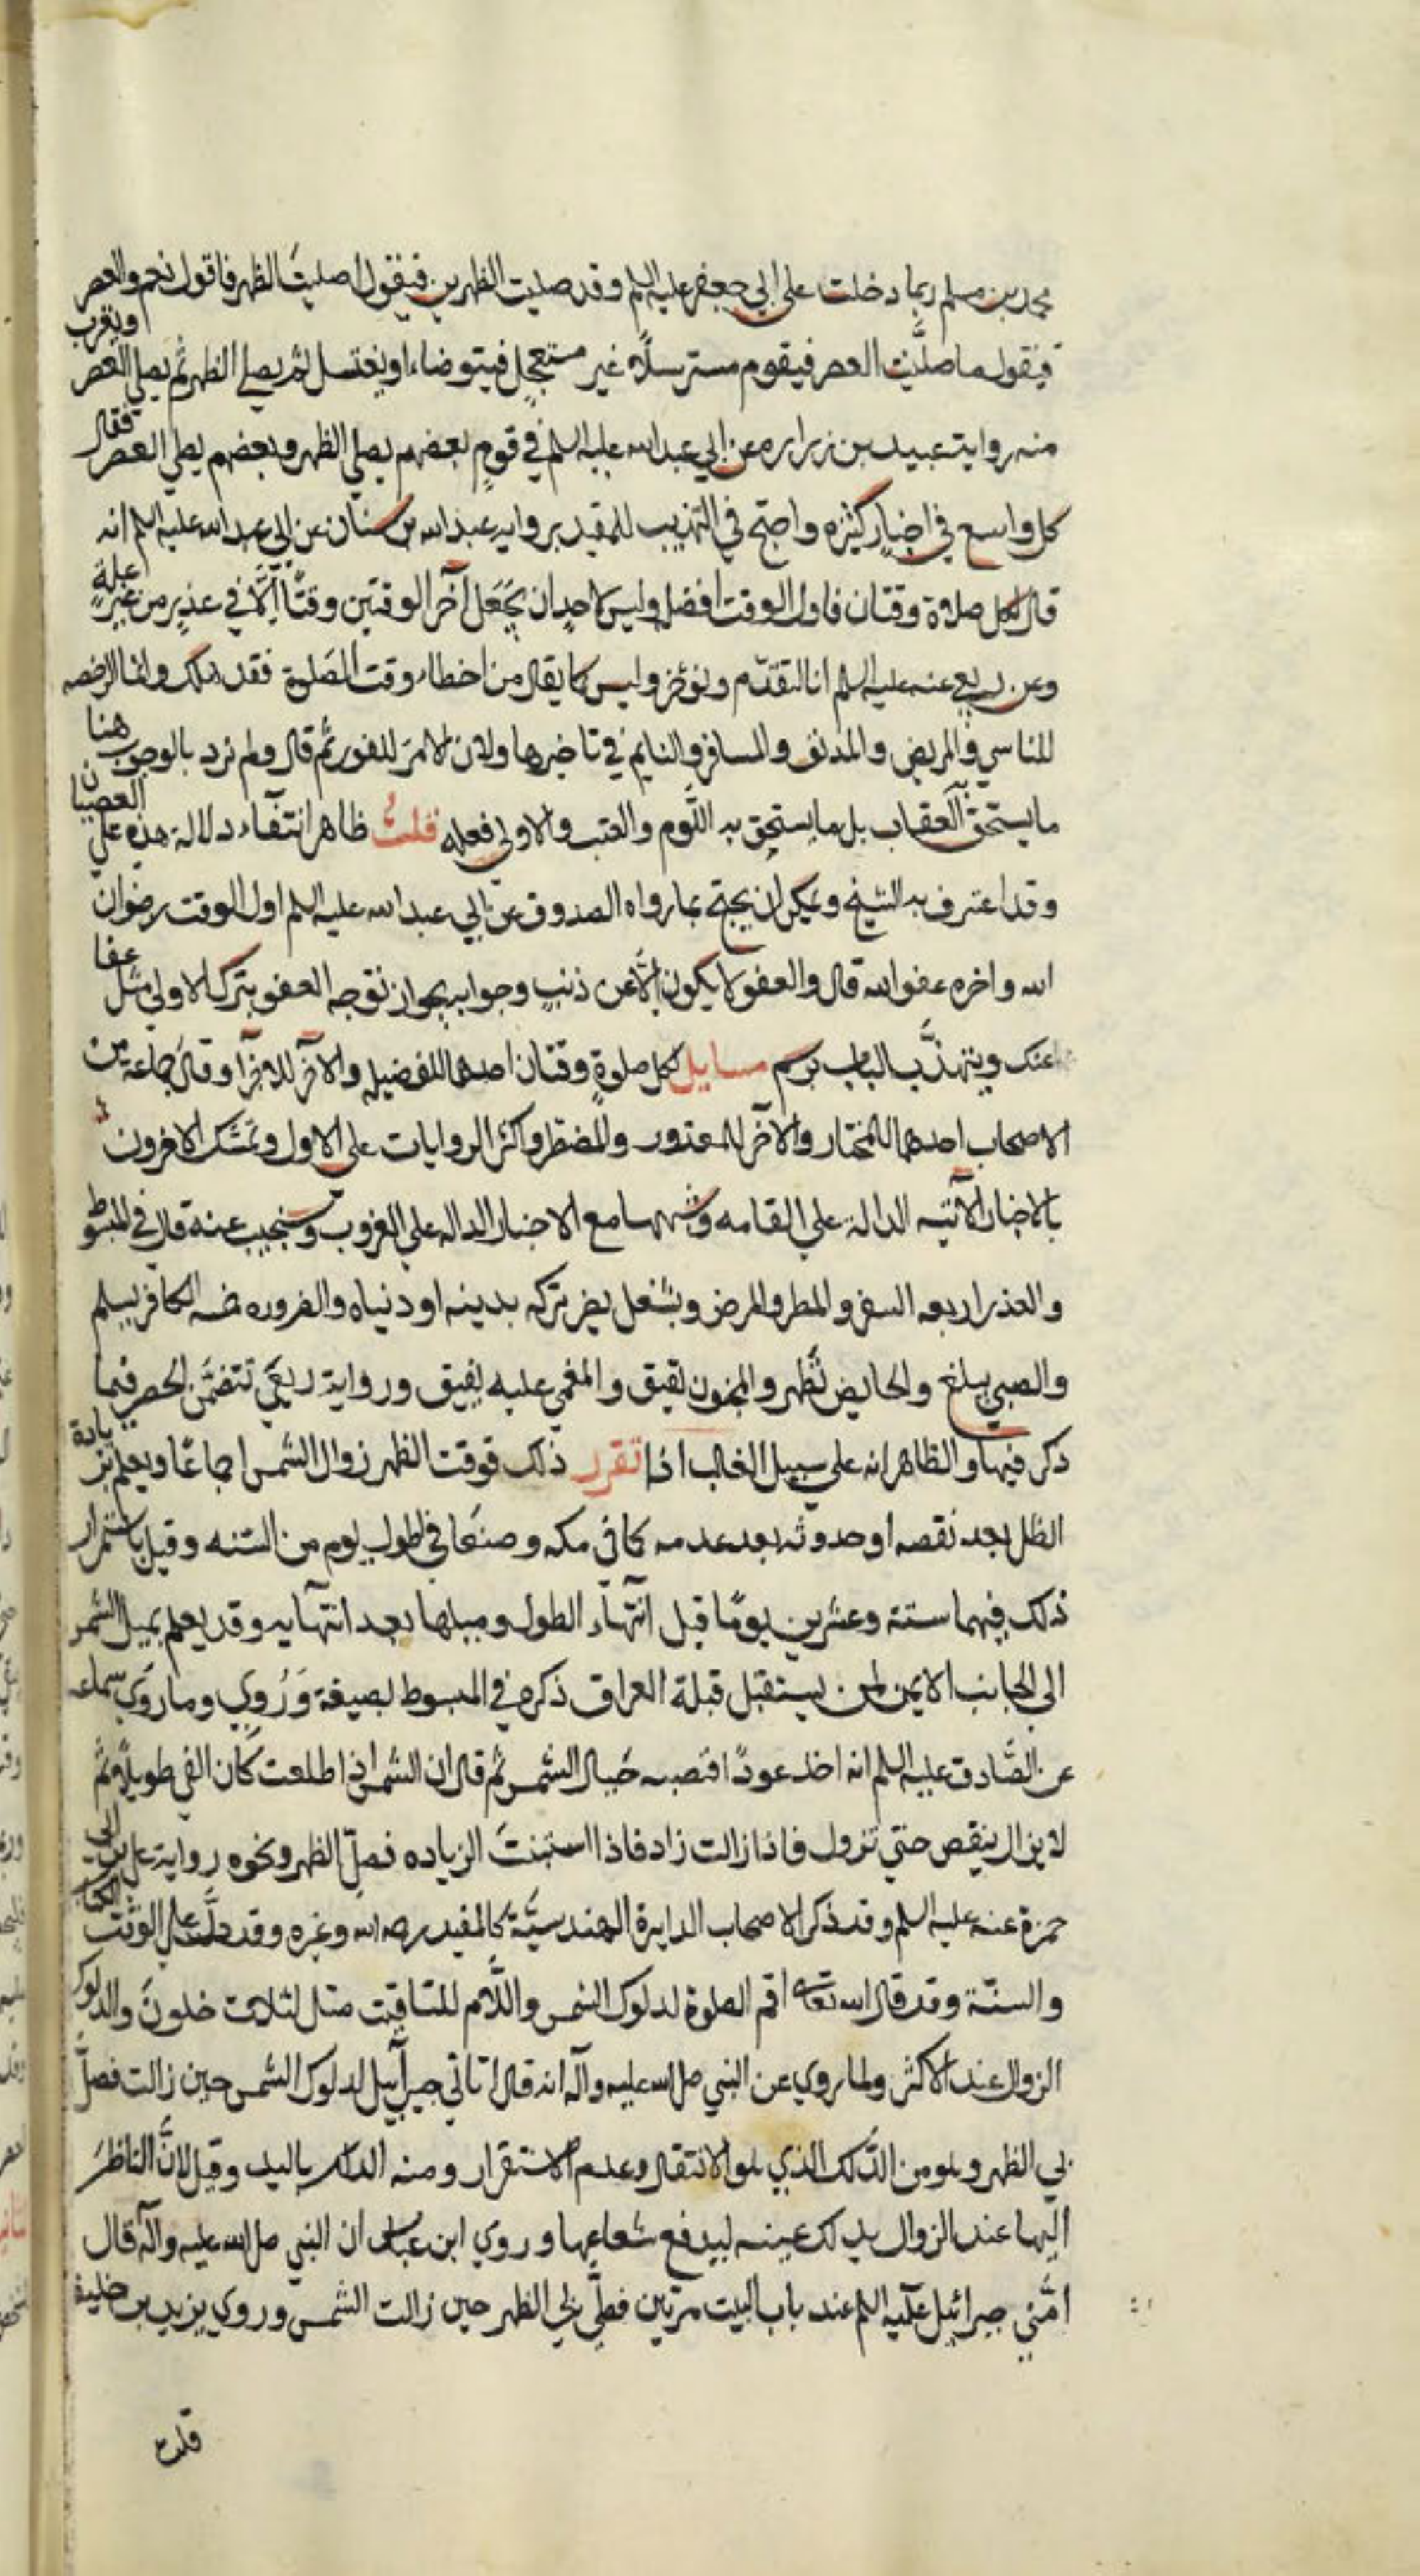 محمد بن مسلم ربما دخلت على ابي جعفر عليه السلم وقد صليت الظهرين فيقول اصليت الظهر فاقول نعم والعصر
فيقول ما صليت العصر فيقوم مسترسلا غير مستعجل فيتوضاء او يغتسل ثم يصلي الظهر ثم يصلي العصر ويقرب
منه رواية عبيد بن زراره عن ابي عبد الله عليه السلم في قوم بعضهم يصلي الظهر وبعضهم يصلي العصر فقال
كل واسع في اخبار كثيره واحتج في التهذيب للمفيد بروايه عبد الله بن سنان عن ابي عبد الله عليه السلم انه
قال لكل صلاة وقتان فاول الوقت افضل وليس لاحد ان يجعل آخر الوقتين وقتًا إلَّا في عذرٍ من غير علةٍ
وعن ربعي عنه عليه السلم انا لنقدّم ونؤخر وليس كما يقال من اخطاء وقت الصلوة فقد هلك وانما الرخصه
للناسي والمريض والمدنف والمسافر والنايم في تاخيرها ولان الامر للفور ثم قال ولم نرد بالوجوب هنا
ما يستحق العقاب بل ما يستحق به اللَّوم والعتب والاولى فعله قلتُ ظاهر انتفاء دلالة هذه على العصيان
وقد اعترف به الشيخ ويمكن ان يحتج بما رواه الصدوق عن ابي عبد الله عليه السلم اول الوقت رضوان
الله واخره عفو الله قال والعفو لا يكون إلَّا عن ذنبٍ وجوابه بجواز توجه العفو بترك الاولى مثل عفا
عنك ويتهذَّب الباب برسم مسايل لكل صلوةٍ وقتان احدهما للفضيله والآخر للاجزآء وقال جماعة من
الاصحاب احدهما للمختار والآخر للمعذور والمضطر واكثر الروايات على الاول وتمسَّك الاخرون
بالاخبار الآتيه الدالة على القامه وشبهها مع الاخبار الداله على الغروب وسنجيب عنه قال في المبسوط
والعذر اربعه السفر والمطر والمرض وشغل يضر تركه بدينه او دنياه والضروره خمسه الكافر يسلم
والصبي يبلغ والحايض تطهر والمجنون يفيق والمغمى عليه يفيق ورواية ربعيّ تتضمّن الحصر فيما
ذكر فيها والظاهر انه على سبيل الغالب اذا تقرر ذلك فوقت الظهر زوال الشمس اجماعًا ويعلم بزيادة
الظل بعد نقصه او حدوثه بعد عدمه كما في مكه وصنعا في اطول يوم من السّنه وقيل باستمرار
ذلك فيهما ستة وعشرين يومًا قبل انتهاء الطول ومثلها بعد انتهايه وقد يعلم بميل الشمس
الى الجانب الايمن لمن يستقبل قبلة العراق ذكره في المبسوط بصيغة وَرُوِي وما روى سماعه
عن الصَّادق عليه السلم انه اخذ عودًا فنصبه حيال الشمس ثم قال ان الشمس اذا طلعت كان الفي طويلا ثم
لا يزال ينقص حتي تزول فاذا زالت زاد فاذا استبنت الزياده فصلّ الظهر ونحوه رواية علي بن ابي
حمزة عنه عليه السلم وقد ذكر الاصحاب الدايرة الهندسيّة كالمفيد رحمه الله وغيره وقد دلَّ على الوقت الكتاب
والسنّة وقد قال الله تعالى اقم الصلوة لدلوك الشمس واللَّام للتاقيت مثل لثلاث خلونَ والدلوك
الزوال عند الاكثر ولما روي عن النبي صلى الله عليه وآله انه قال اتاني جبرآئيل لدلوك الشمس حين زالت فصلَّ
بي الظهر وهو من الدَّلك الذي هو الانتقال وعدم الاستقرار ومنه الدلك باليد وقيل لانَّ الناظرَ
اليها عند الزوال يدلك عينه ليدفع شعاعها وروي ابن عباس ان النبي صلى الله عليه وآله قال
اَمَّني جبرائيل عليه السلم عند باب البيت مرتين فصلَّى بي الظهر حين زالت الشمس وروي يزيد بن خليفة
قلت